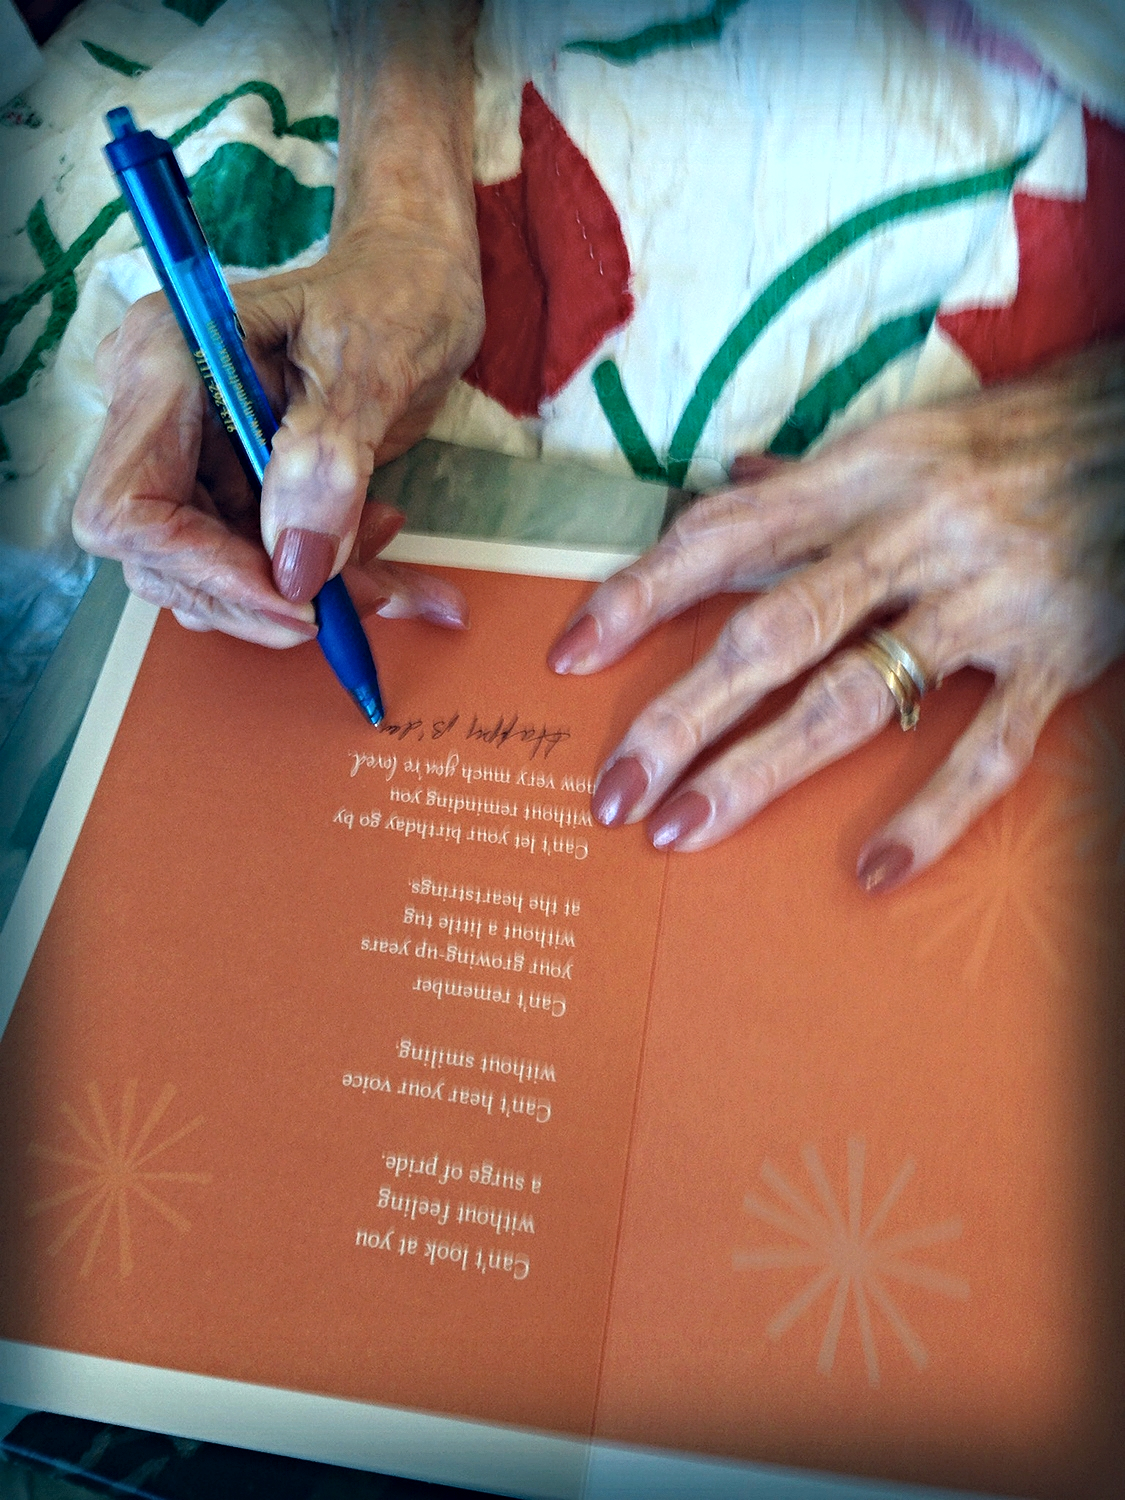 Can't look at you
without feeling
a surge of pride.
Can't hear your voice
without smiling.
Can't remember
your growing-up years
without a little tug
at the heartstrings.
Can't let your birthday go by
without reminding you
how very much you're loved.
Happy B'da
www.mymetrotax.com
913-262-1114